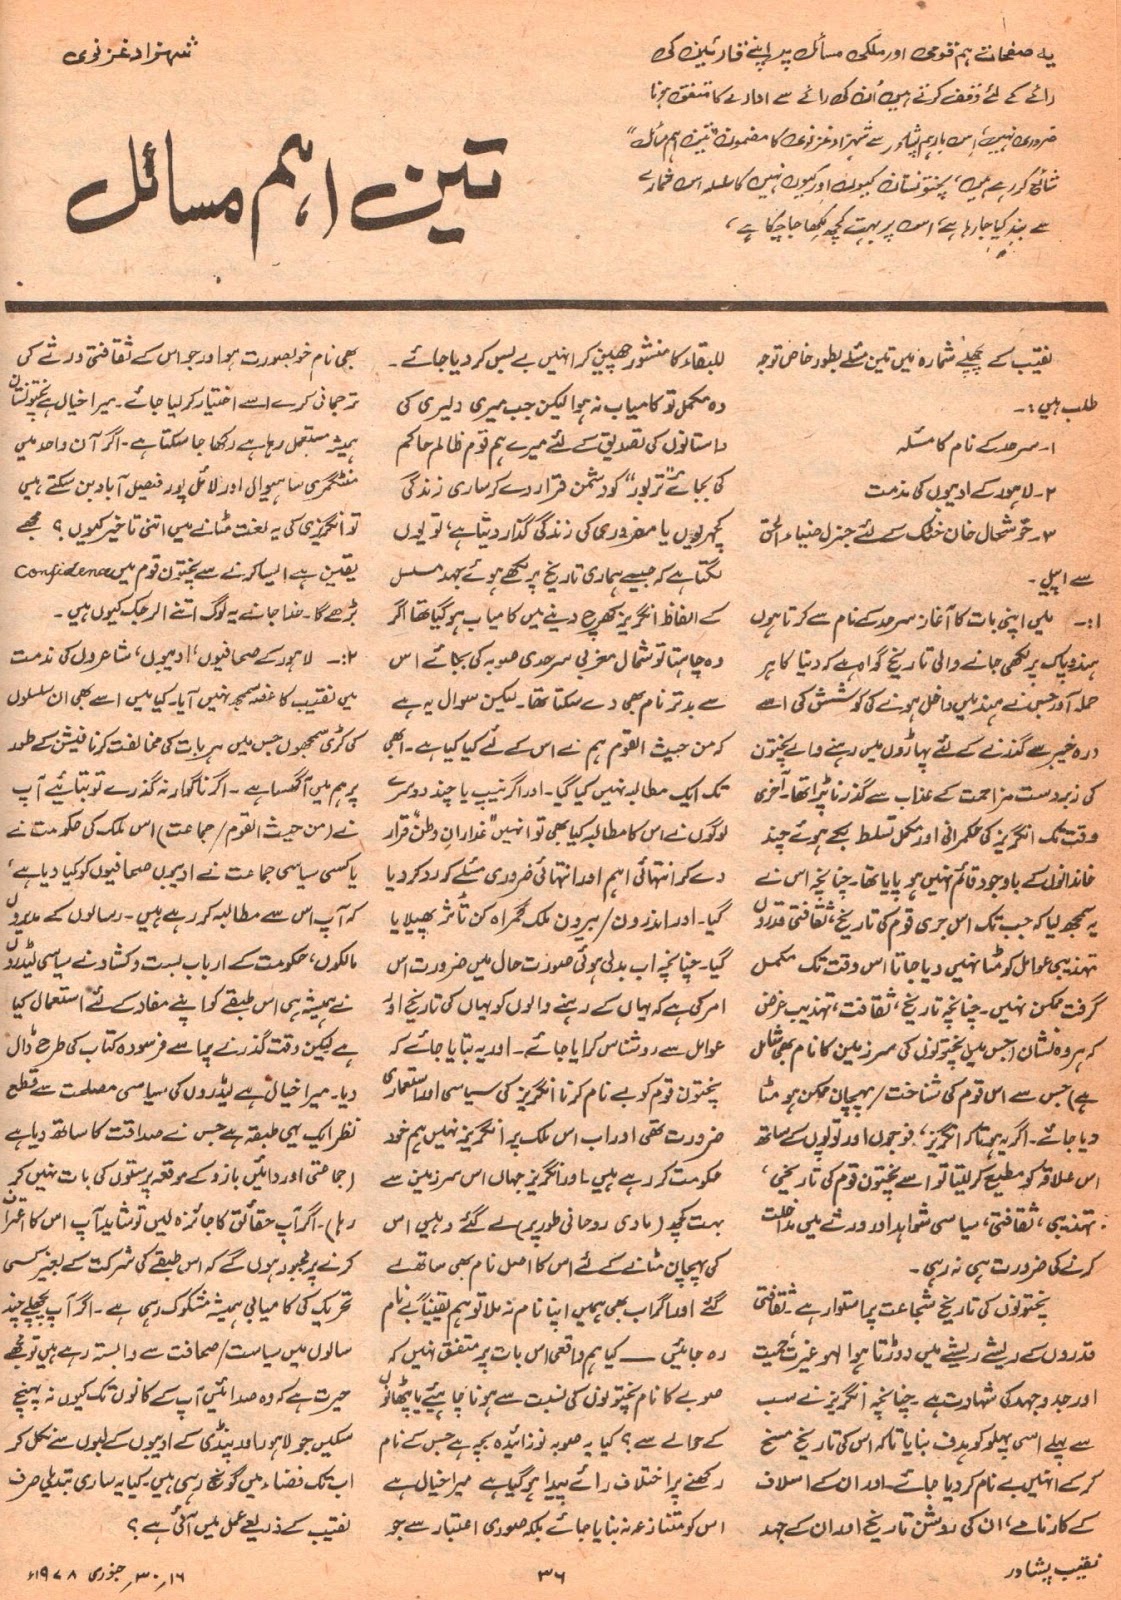 شہزاد غزنوی
یہ صفحات ہم قومی اور ملکی مسائل پر اپنے قارئین کی
رائے کے لئے وقف کرتے ہیں اُن کی رائے سے ادارے کا متفق ہونا
ضروری نہیں، اس بار ہم پشاور سے شہزاد غزنوی کا مضمون "تین اہم مسائل"
شائع کر رہے ہیں، پختونستان کیوں اور کیوں نہیں کا سلسلہ اس شمارے
سے بند کیا جا رہا ہے، اس پر بہت کچھ لکھا جا چکا ہے،
تین اہم مسائل
نقیب کے پچھلے شمارہ میں تین مسئلے بطور خاص توجہ
طلب ہیں:۔
۱۔ سرحد کے نام کا مسئلہ
۲۔ لاہور کے ادیبوں کی مذمت
۳۔ خوشحال خان خٹک کے لئے جنرل ضیاء الحق
سے اپیل۔
۱:۔ میں اپنی بات کا آغاز سرحد کے نام سے کرتا ہوں
ہند و پاک پر لکھی جانے والی تاریخ گواہ ہے کہ دنیا کا ہر
حملہ آور جس نے ہند میں داخل ہونے کی کوشش کی اسے
درہ خیبر سے گذرنے کے لئے پہاڑوں میں رہنے والے پختون
کی زبردست مزاحمت کے عذاب سے گذرنا پڑا تھا۔ آخری
وقت تک انگریز کی حکمرانی اور مکمل تسلط بکے ہوئے چند
خاندانوں کے باوجود قائم نہیں ہو پایا تھا۔ چنانچہ اس نے
یہ سمجھ لیا کہ جب تک اس جری قوم کی تاریخ، ثقافتی قدروں
تہذیبی عوامل کو مٹا نہیں دیا جاتا اس وقت تک مکمل
گرفت ممکن نہیں۔ چنانچہ تاریخ، ثقافت، تہذیب غرض
کہ ہر وہ نشان (جس میں پختونوں کی سرزمین کا نام بھی شامل
ہے) جس سے اس قوم کی شناخت / پہچان ممکن ہو مٹا
دیا جائے۔ اگر یہ ہمتا کہ انگریز، فوجوں اور توپوں کے ساتھ
اس علاقہ کو مطیع کر لیتا تو اسے پختون قوم کی تاریخی،
تہذیبی، ثقافتی، سیاسی شواہد اور ورثے میں مداخلت
کرنے کی ضرورت ہی نہ رہی۔
پختونوں کی تاریخ شجاعت پر استوار ہے۔ ثقافتی
قدروں کے ریشے ریشے میں دوڑتا ہوا لہو غیرت، حمیت
اور جد و جہد کی شہادت ہے۔ چنانچہ انگریز نے سب
سے پہلے اسی پہلو کو ہدف بنایا تاکہ اس کی تاریخ مسخ
کر کے انہیں بے نام کر دیا جائے۔ اور ان کے اسلاف
کے کارنامے، ان کی روشن تاریخ اور ان کے جہد
للبقاء کا منشور چھین کر انہیں بے بس کر دیا جائے۔
وہ مکمل تو کامیاب نہ ہوا لیکن جب میری دلیری کی
داستانوں کی تصدیق کے لئے میرے ہم قوم ظالم حاکم
کی بجائے "تربور" کو دشمن قرار دے کر ساری زندگی
کچہریوں یا مفروری کی زندگی گذار دیتا ہے، تو یوں
لگتا ہے کہ جیسے ہماری تاریخ پر لکھے ہوئے جہد مسلسل
کے الفاظ انگریز کھرچ دینے میں کامیاب ہو گیا تھا اگر
وہ چاہتا تو شمال مغربی سرحدی صوبہ کی بجائے اس
سے بدتر نام بھی دے سکتا تھا۔ لیکن سوال یہ ہے
کہ من حیث القوم ہم نے اس کے لئے کیا کیا ہے۔ ابھی
تک ایک مطالبہ نہیں کیا گیا۔ اور اگر نیپ یا چند دوسرے
لوگوں نے اس کا مطالبہ کیا بھی تو انہیں "غدارانِ وطن" قرار
دے کر انتہائی اہم اور انتہائی ضروری مسئلے کو رد کر دیا
گیا۔ اور اندرون / بیرون ملک گمراہ کن تاثر پھیلایا
گیا۔ چنانچہ اب بدلی ہوئی صورت حال میں ضرورت اس
امر کی ہے کہ یہاں کے رہنے والوں کو یہاں کی تاریخ اور
عوامل سے روشناس کرایا جائے۔ اور یہ بتایا جائے کہ
پختون قوم کو بے نام کرنا انگریز کی سیاسی اور استعماری
ضرورت تھی اور اب اس ملک پر انگریز نہیں ہم خود
حکومت کر رہے ہیں۔ اور انگریز جہاں اس سرزمین سے
بہت کچھ (مادی روحانی طور پر) لے گئے وہیں اس
کی پہچان مٹانے کے لئے اس کا اصل نام بھی ساتھ لے
گئے اور اگر اب بھی ہمیں اپنا نام نہ ملا تو ہم یقیناً بے نام
رہ جائیں — کیا ہم واقعی اس بات پر متفق نہیں کہ
صوبے کا نام پختونوں کی نسبت سے ہونا چاہیئے یا پٹھانوں
کے حوالے سے؟ کیا یہ صوبہ نوزائیدہ بچہ ہے جس کے نام
رکھنے پر اختلاف رائے پیدا ہو گیا ہے میرا خیال ہے
اس کو متنازعہ نہ بنایا جائے بلکہ صوری اعتبار سے جو
بھی نام خوبصورت ہو اور جو اس کے ثقافتی ورثے کی
ترجمانی کرے اسے اختیار کر لیا جائے۔ میرا خیال ہے پختونستان
ہمیشہ مستعمل رہا ہے رکھا جا سکتا ہے۔ اگر آن واحد میں
منٹگمری ساہیوال اور لائل پور فیصل آباد بن سکتے ہیں
تو انگریزی کی یہ لعنت مٹانے میں اتنی تاخیر کیوں؟ مجھے
یقین ہے ایسا کرنے سے پختون قوم میں Confidence
بڑھے گا۔ خدا جانے یہ لوگ اتنے الرجک کیوں ہیں۔
۲:۔ لاہور کے صحافیوں، ادیبوں، شاعروں کی مذمت
میں نقیب کا غصہ سمجھ نہیں آیا۔ کیا میں اسے بھی ان سلسلوں
کی کڑی سمجھوں جس میں ہر بات کی مخالفت کرنا فیشن کے طور
پر ہم میں آ گھسا ہے۔ اگر ناگوار نہ گذرے تو بتائیے آپ
نے (من حیث القوم / جماعت) اس ملک کی حکومت نے
یا کسی سیاسی جماعت نے ادیبوں صحافیوں کو کیا دیا ہے،
کہ آپ اس سے مطالبہ کر رہے ہیں۔ رسالوں کے مدیروں
مالکوں، حکومت کے ارباب بست و کشاد نے سیاسی لیڈروں
نے ہمیشہ ہی اس طبقے کو اپنے مفاد کے لئے استعمال کیا
ہے لیکن وقت گذرنے پر اسے فرسودہ کتاب کی طرح ڈال
دیا۔ میرا خیال ہے لیڈروں کی سیاسی مصلحت سے قطع
نظر ایک یہی طبقہ ہے جس نے صداقت کا ساتھ دیا ہے
(جماعتی اور دائیں بازو کے موقعہ پرستوں کی بات نہیں کر
رہا)۔ اگر آپ حقائق کا جائزہ لیں تو شاید آپ اس کا اعتراف
کرنے پر مجبور ہوں گے کہ اس طبقے کی شرکت کے بغیر کسی
تحریک کی کامیابی ہمیشہ مشکوک رہی ہے۔ اگر آپ پچھلے چند
سالوں میں سیاست / صحافت سے وابستہ رہے ہیں تو مجھے
حیرت ہے کہ وہ صدائیں آپ کے کانوں تک کیوں نہ پہنچ
سکیں جو لاہور اور پنڈی کے ادیبوں کے لبوں سے نکل کر
اب تک فضاء میں گونج رہی ہیں۔ کیا یہ ساری تبدیلی صرف
نقیب کے ذریعے عمل میں آئی ہے؟
نقیب پشاور
۳۶
۱۶۔ ۳۰، جنوری ۱۹۷۸ء